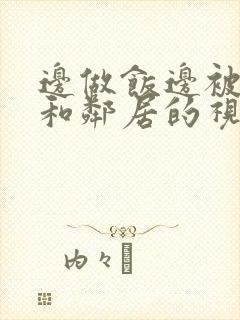 邊做飯邊被
和鄰居的視
內々